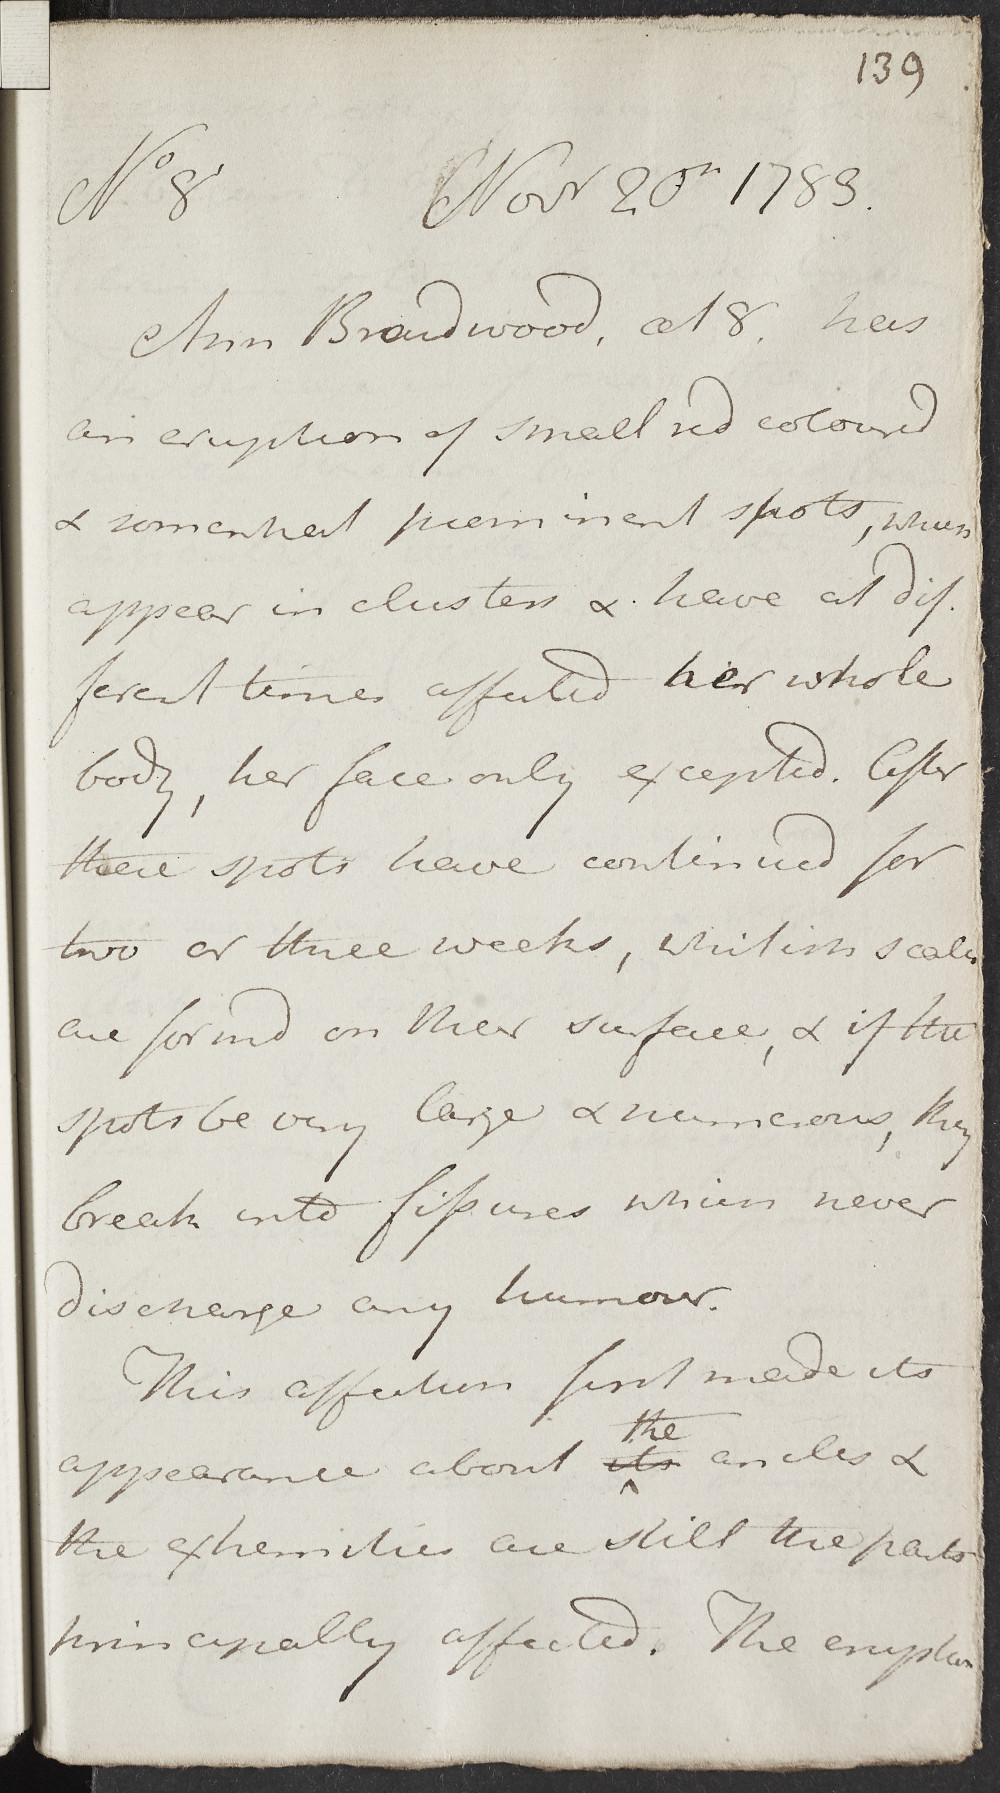 139
No 8 Novr 20th 1783.
Ann Braidwood, æt 8. has
an eruption of small red coloured
& somewhat prominent spots, which
appear in clusters & have at dif-
ferent times affected her whole
body, her face only excepted. After
these spots have continued for
two or three weeks, whitish scales
are formd on their surface, & if the
spots be very large & numerous, they
break into fissures which never
discharge any humour.
This affection first made its
appearance about its the ancles &
the extremities are still the parts
principally affected. The eruption